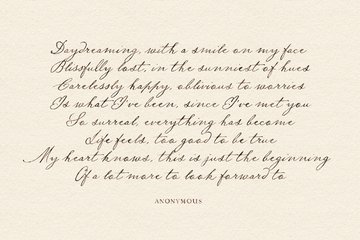 Daydreaming, with a smile on my face
Blissfully lost, in the sunniest of hues
Carelessly happy, oblivious to worries
Is what I've been, since I've met you
So surreal, everything has become
Life feels, too good to be true
My heart knows, this is just the beginning
Of a lot more to look forward to
ANONYMOUS